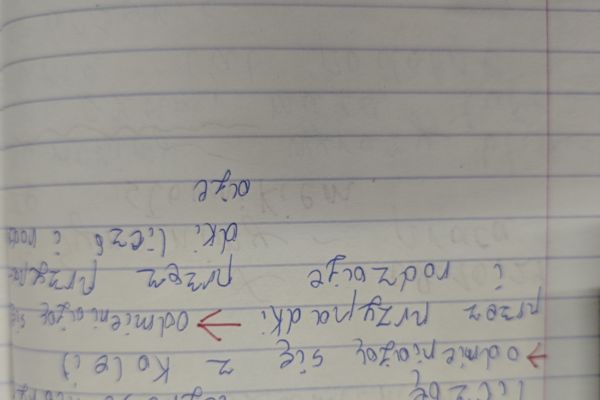 liczbę
→ odmieniają się z kolei)
przez przypadki → odmieniają się
i rodzaje przez przypa
dki, liczb i rodz
aje